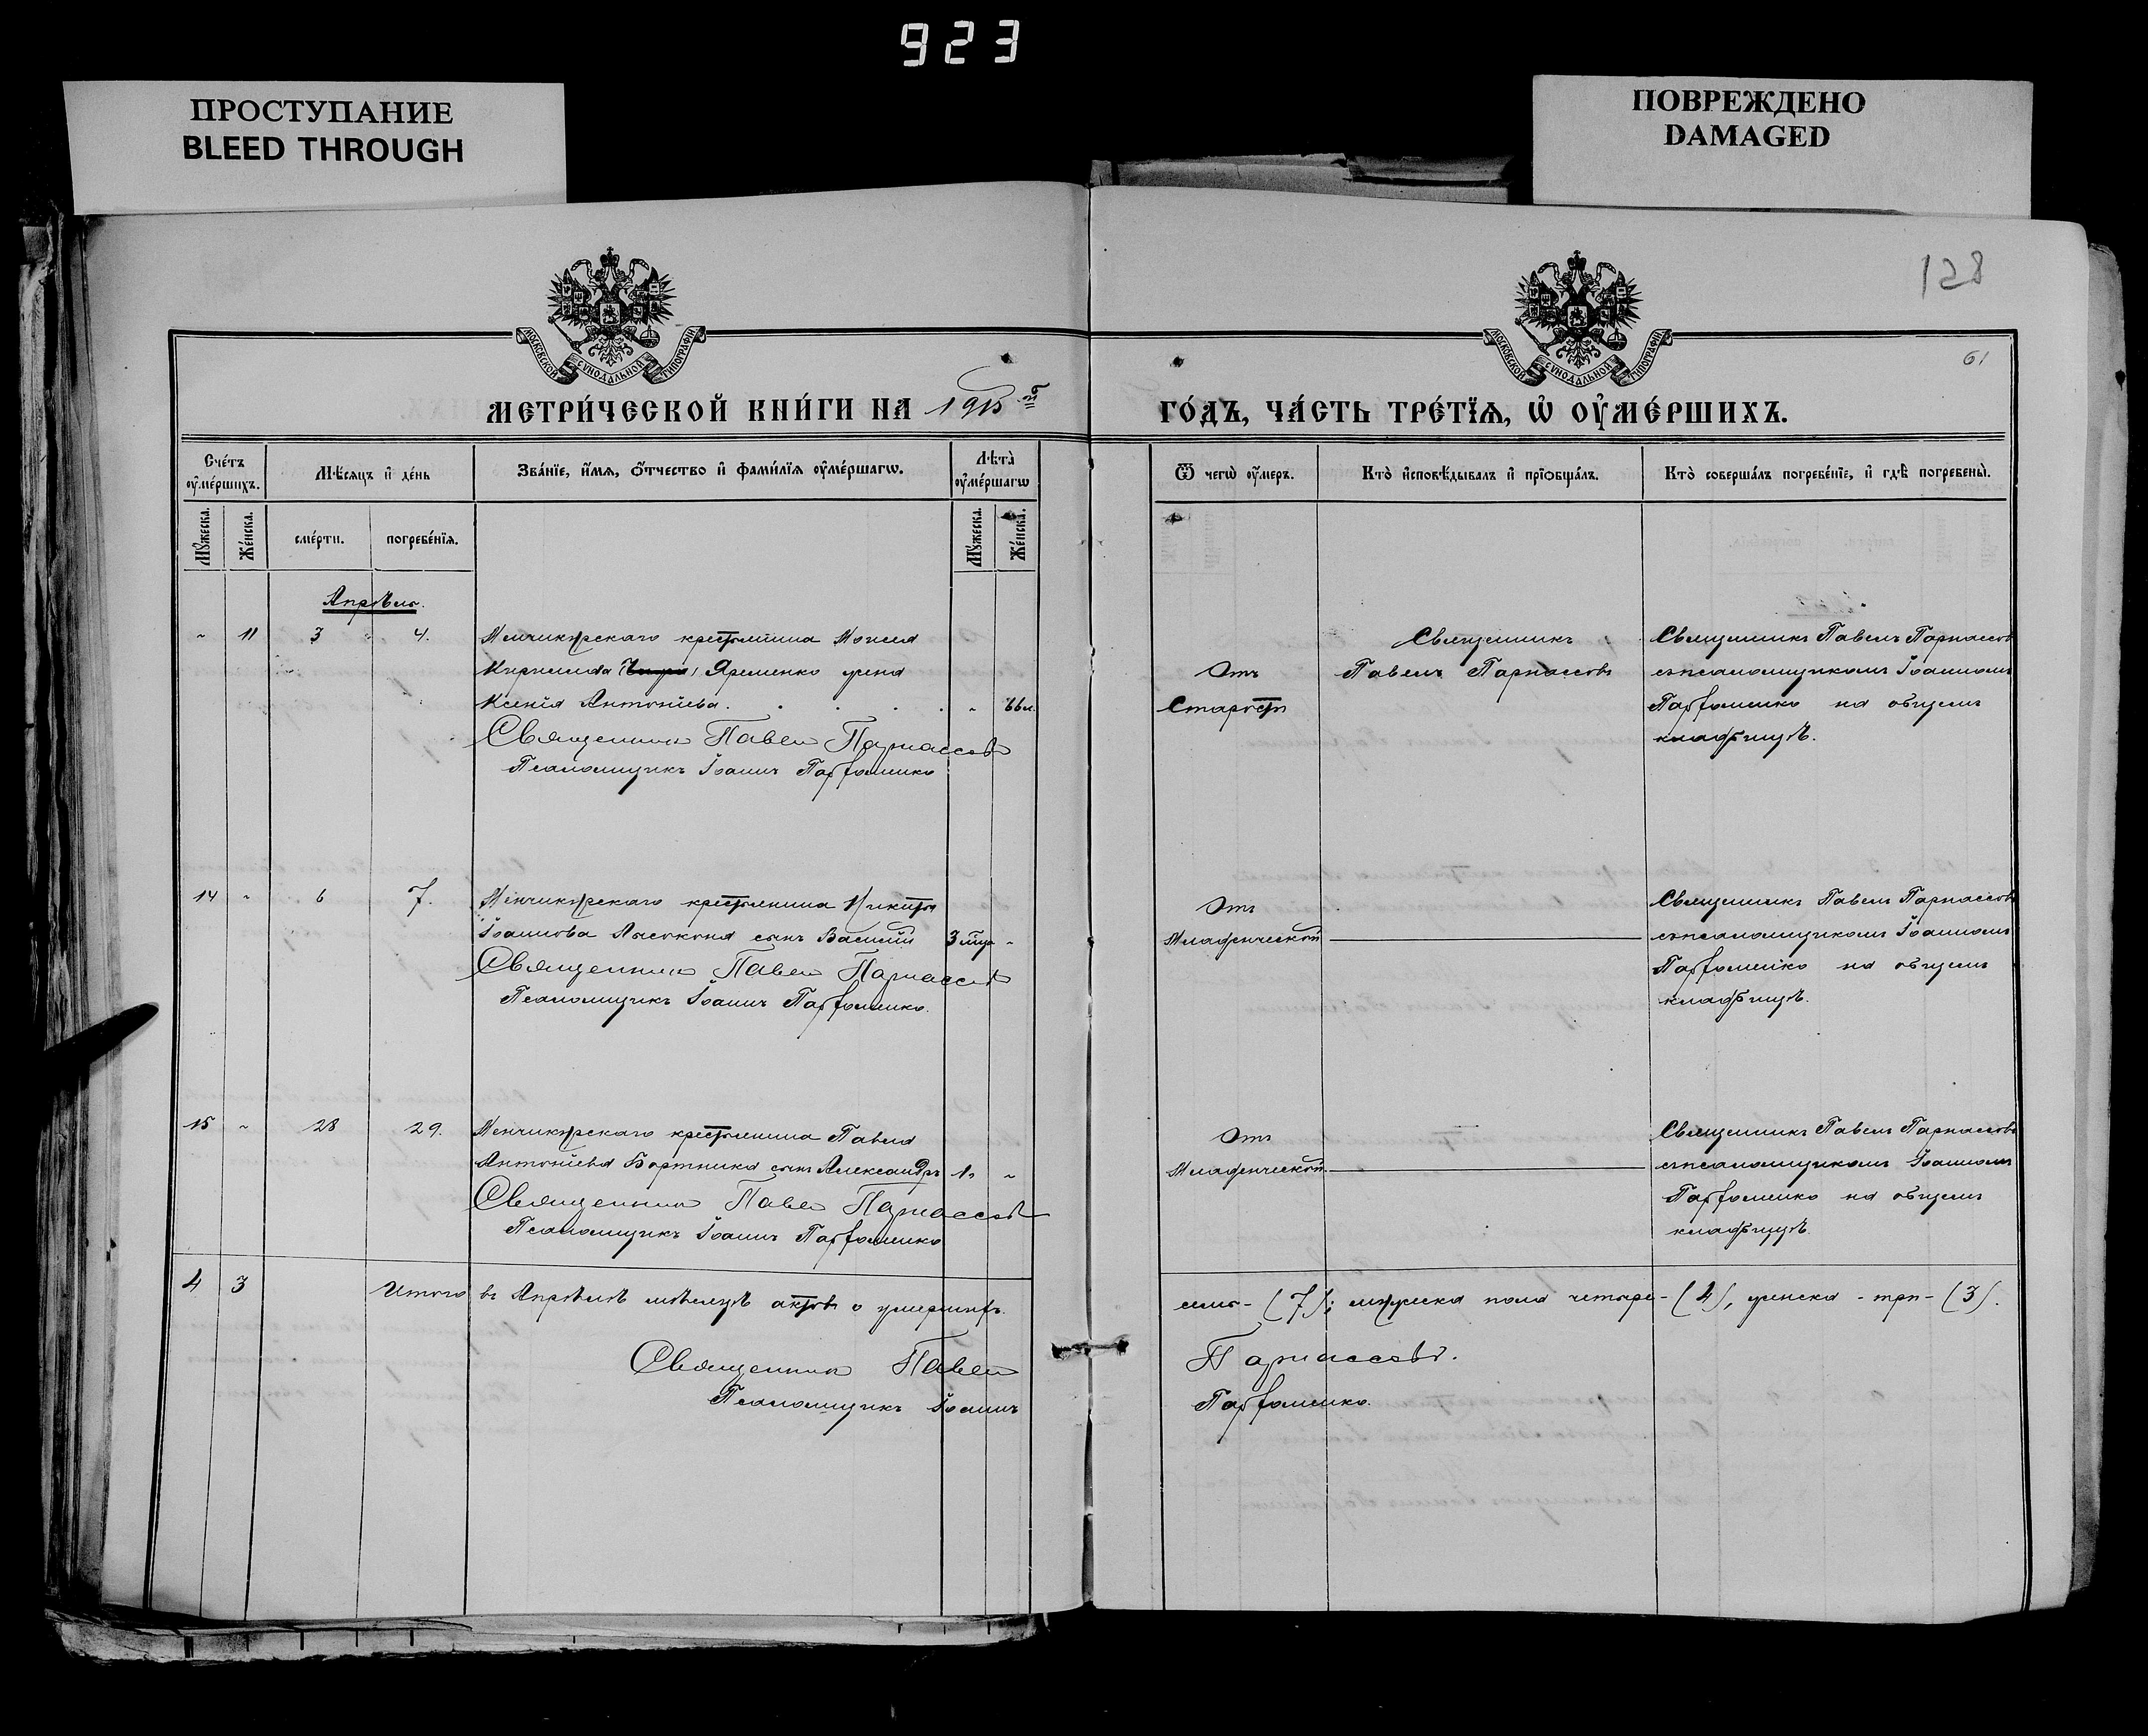 923
ПРОСТУПАНИЕ
BLEED THROUGH
ПОВРЕЖДЕНО
DAMAGED
128
61
МОСКОВСКОЙ СѴНОДАЛЬНОЙ ТИПОГРАФІИ
МОСКОВСКОЙ СѴНОДАЛЬНОЙ ТИПОГРАФІИ
МЕТРИ́ЧЕСКОЙ КНИ́ГИ НА 1915 й
ГО́ДЪ, ЧА́СТЬ ТРЕ́ТЇѦ, Ѡ҆ ОУ҆МЕ́РШИХЪ.
Сче́тъ оу҆ме́ршихъ.
Мѣ́сѧцъ и҆ де́нь
Зва́нїе, и҆́мѧ, ѻ҆́тчество и҆ фами́лїѧ оу҆ме́ршагѡ.
Лѣ́та оу҆ме́ршагѡ
Ѿ чегѡ̀ оу҆́меръ.
Кто̀ и҆сповѣ́дывалъ и҆ прїѻбща́лъ.
Кто̀ соверша́лъ погребе́нїе, и҆ гдѣ̀ погребены̀.
Мꙋ́жеска.
Же́нска.
сме́рти.
погребе́нїѧ.
Мꙋ́жеска.
Же́нска.
Апрѣль.
" 11 3 " 4. Менчикурскаго крестьянина Моисея
Кириллова Яременко жена
Ксенія Антоніева . . . . . "
Священникъ Павелъ Парнассовъ
Псаломщикъ Іоаннъ Парфоменко
Отъ
Старости
Священникъ
Павелъ Парнассовъ
Священникъ Павелъ Парнассовъ
съ псаломщикомъ Іоанномъ
Парфоменко на общемъ
кладбищѣ.
14 " 6 7. Менчикурскаго крестьянина Никиты
Іоаннова Лысоконя сынъ Василій 3 мца "
Священникъ Павелъ Парнассовъ
Псаломщикъ Іоаннъ Парфоменко.
Отъ
Младенческой
Священникъ Павелъ Парнассовъ
съ псаломщикомъ Іоанномъ
Парфоменко на общемъ
кладбищѣ.
15 " 28 29. Менчикурскаго крестьянина Павла
Антоніева Бортника сынъ Александръ "
Священникъ Павелъ Парнассовъ
Псаломщикъ Іоаннъ Парфоменко
Отъ
Младенческой
Священникъ Павелъ Парнассовъ
съ псаломщикомъ Іоанномъ
Парфоменко на общемъ
кладбищѣ.
4 3 Итого въ Апрѣлѣ мѣсяцѣ актовъ о умершихъ
семь - (7); мужеска пола четыре - (4), женска - три - (3).
Священникъ Павелъ Парнассовъ.
Псаломщикъ Іоаннъ Парфоменко.